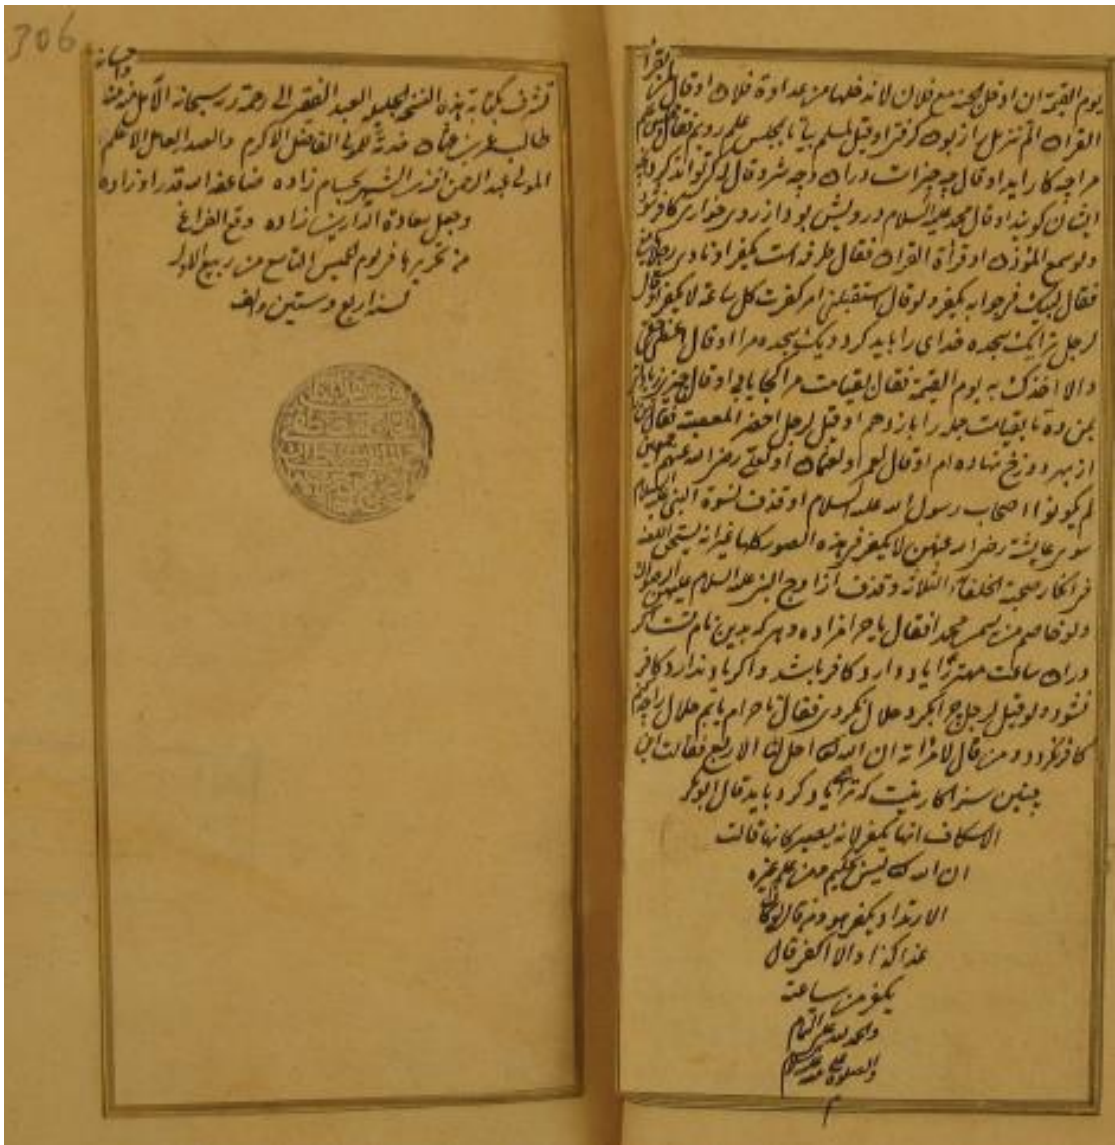 يوم القيمة ان ادخل الجنة مع فلان لا ندخلها من عداوة فلان او قال
القران الم تنزيل از بون كرفتى او قيل لمسلم بيا تا بمجلس علم رويم فقال
مرا چه كار آيد او قال چه چيزات دران وجه شد وقال
ايشان كويند او قال محمد عليه السلام درويش بود از روى خوارى كافر شود
ولو سمع المؤذن او قرأة القران فقال طرفه است كفر او نادى رجلا
فقال لبيك فى جوابه يكفر ولو قال استقبلنى امر كفرت كل ساعة لا يكفر او قال
لرجل ترا يك سجده خداى را بايد كرد ويك سجده مرا او قال اعطنى حقى
والا اخذتك به يوم القيمة فقال بقيامت مرا كجا يابى او قال
بمن ده تا بقيامت جمله را باز دهم او قيل لرجل احضر المعصية فقال
از بهر دوزخ نهاده ام او قال لعمر او لعثمان او لعلى رضى الله عنهم
لم يكونوا اصحاب رسول الله عليه السلام او قذف نسوة النبى عليه السلام
سوى عايشة رضى الله عنهن لا يكفر فى هذه الصور كلها غير انه يستحق اللعنة
فى انكار صحبة الخلفاء الثلاثة وقذف ازواج النبى عليه السلام
ولو خاصم من يسمى محمدا فقال يا حرامزاده وهركه بدين نام است اكر
دران ساعت مهتر را ياد دارد كافر باشد واكر ياد ندارد كافر
نشود ولو قيل لرجل چرا كرد حلال نكردى فقال تا حرام يابم حلال را چه كنم
كافر نكردد ومن قال لامراته ان الله تعالى احل لنا الاربع فقالت اين
چنين سزاكار نيست كه ترا ياد كرد بايد قال ابو بكر
الاسكاف انها تكفر لانه يصير كانها قالت
ان الله تعالى ليس بحكيم ومن علم غيره
الارتداد يكفر هو ومن قال لو كان
غدا كذا والا اكفر قال
يكفر من ساعته
والحمد لله على التمام
والصلوة على محمد عليه السلام
م
306
تشرف بكتابة هذه النسخة الجليلة العبد الفقير الى رحمة ربه سبحانه الآمل من منه واحسانه
طالب عزيز عثمان خدمة للمولى الفاضل الاكرم والصدر العامل الاعلم
المولى عبد الرحمن افندى الشهير بحسام زاده ضاعف الله قدره وزاده
وجعل سعادة الدارين زاده وقع الفراغ
من تحريرها فى يوم الخميس التاسع من ربيع الاول
لسنة اربع وستين والف